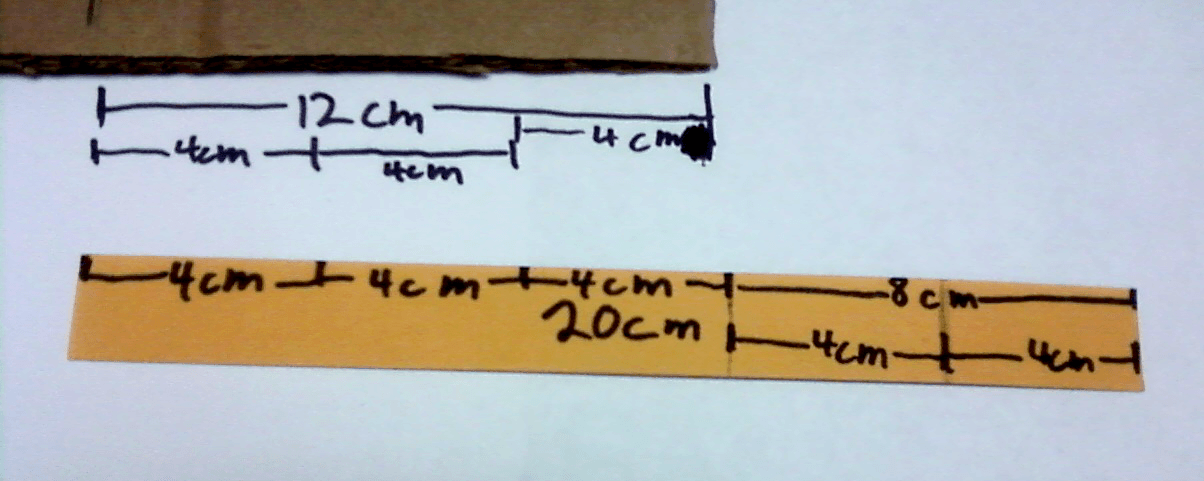 12 cm
4cm 4cm 4 cm
4cm 4cm 4cm 8cm
20cm
4cm 4cm